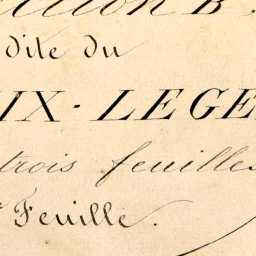 ction B.
dite du
IX-LEGE
trois feuilles
Feuille.